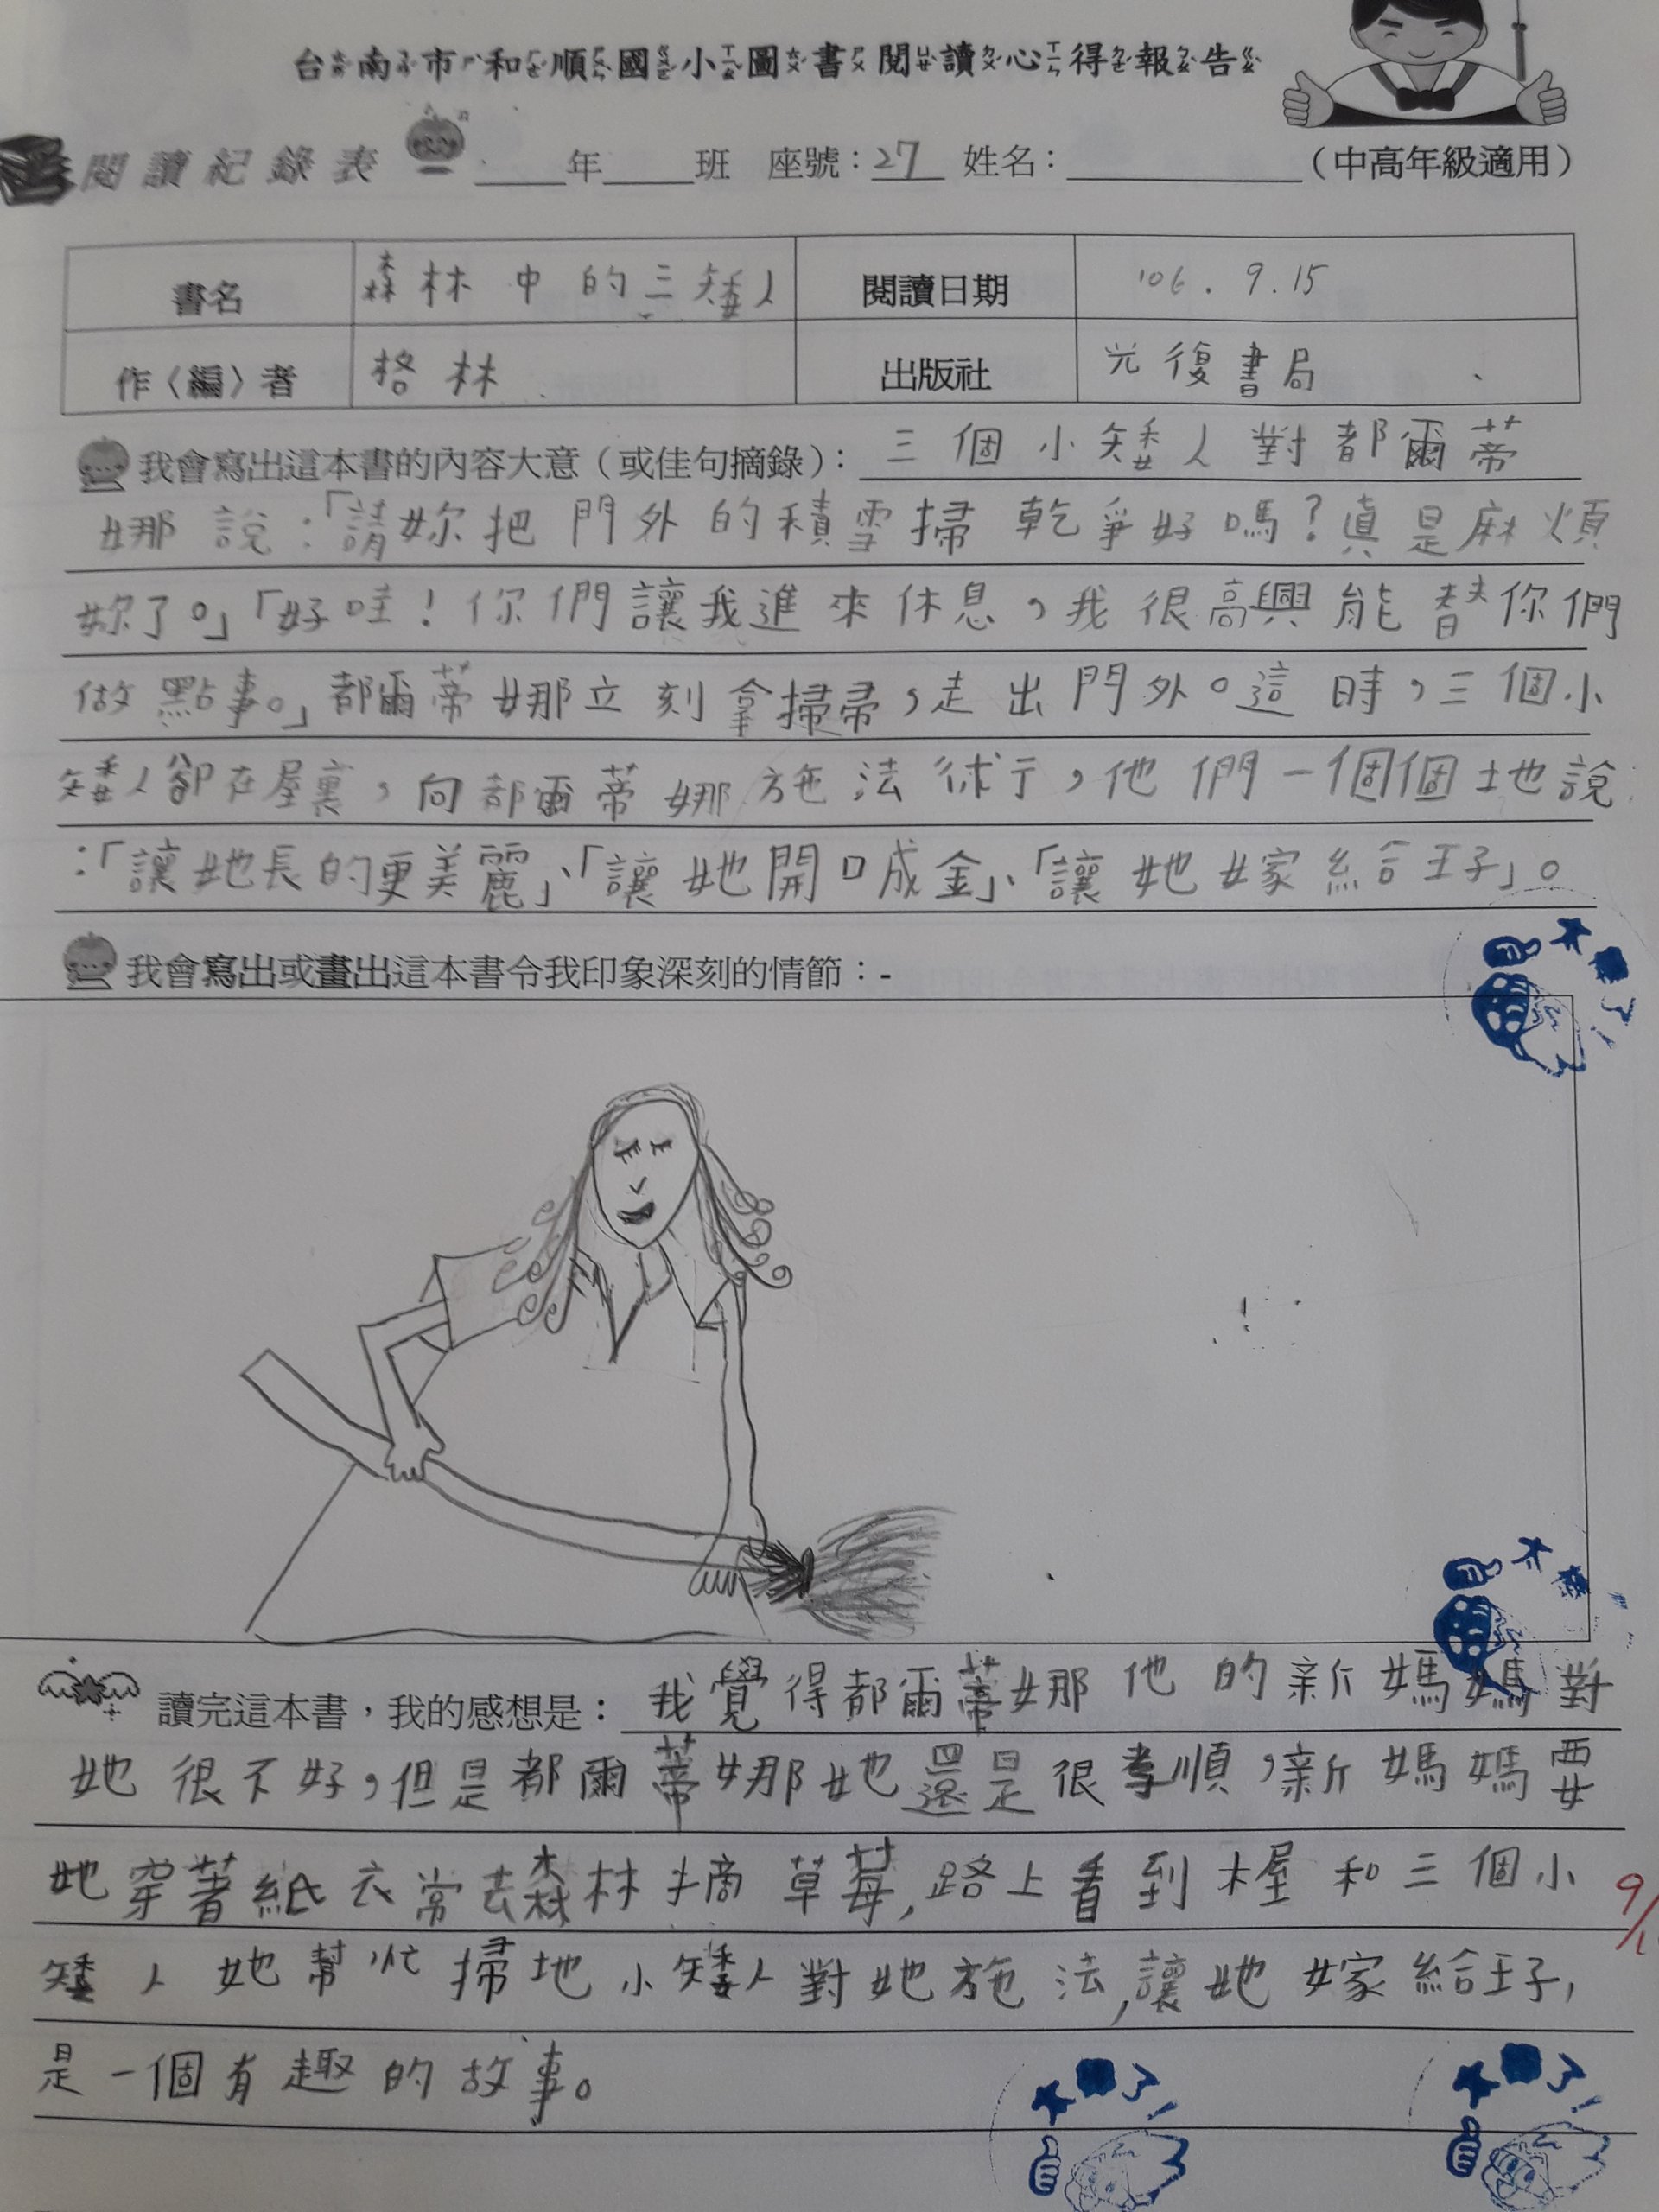 台南市和順國小圖書閱讀心得報告
閱讀紀錄表 ____年____班 座號：27 姓名：__________（中高年級適用）
書名 森林中的三矮人 閱讀日期 106.9.15
作〈編〉者 格林 出版社 光復書局
我會寫出這本書的內容大意（或佳句摘錄）：三個小矮人對都爾蒂
娜說：「請妳把門外的積雪掃乾爭好嗎？真是麻煩
妳了。」「好哇！你們讓我進來休息，我很高興能替你們
做點事。」都爾蒂娜立刻拿掃帚，走出門外。這時，三個小
矮人卻在屋裏，向都爾蒂娜施法術，他們一個個地說
：「讓她長的更美麗」、「讓她開口成金」、「讓她嫁給王子」。
我會寫出或畫出這本書令我印象深刻的情節：-
讀完這本書，我的感想是：我覺得都爾蒂娜他的新媽媽對
她很不好，但是都爾蒂娜她還是很孝順，新媽媽要
她穿著紙衣常去森林摘草莓，路上看到木屋和三個小
矮人她幫忙掃地小矮人對她施法，讓她嫁給王子，
是一個有趣的故事。
太棒了！
太棒
太棒了！
太棒了！